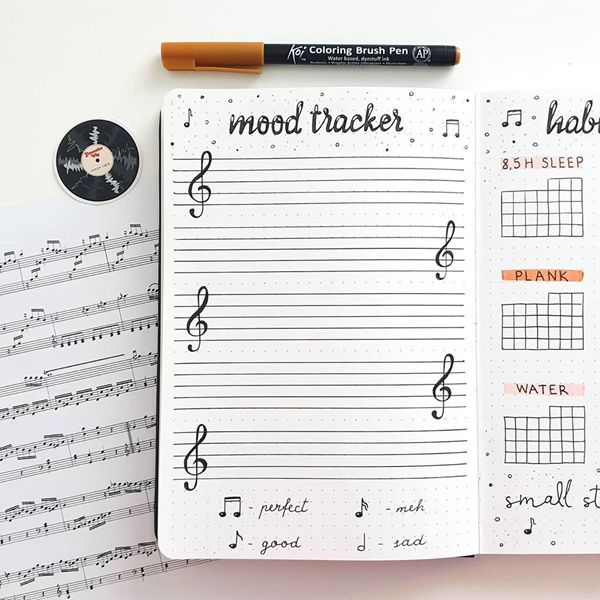 Koi Coloring Brush Pen AP
Water based, dyestuff ink
mood tracker
- perfect
- meh
- good
- sad
habi
8,5H SLEEP
PLANK
WATER
small st